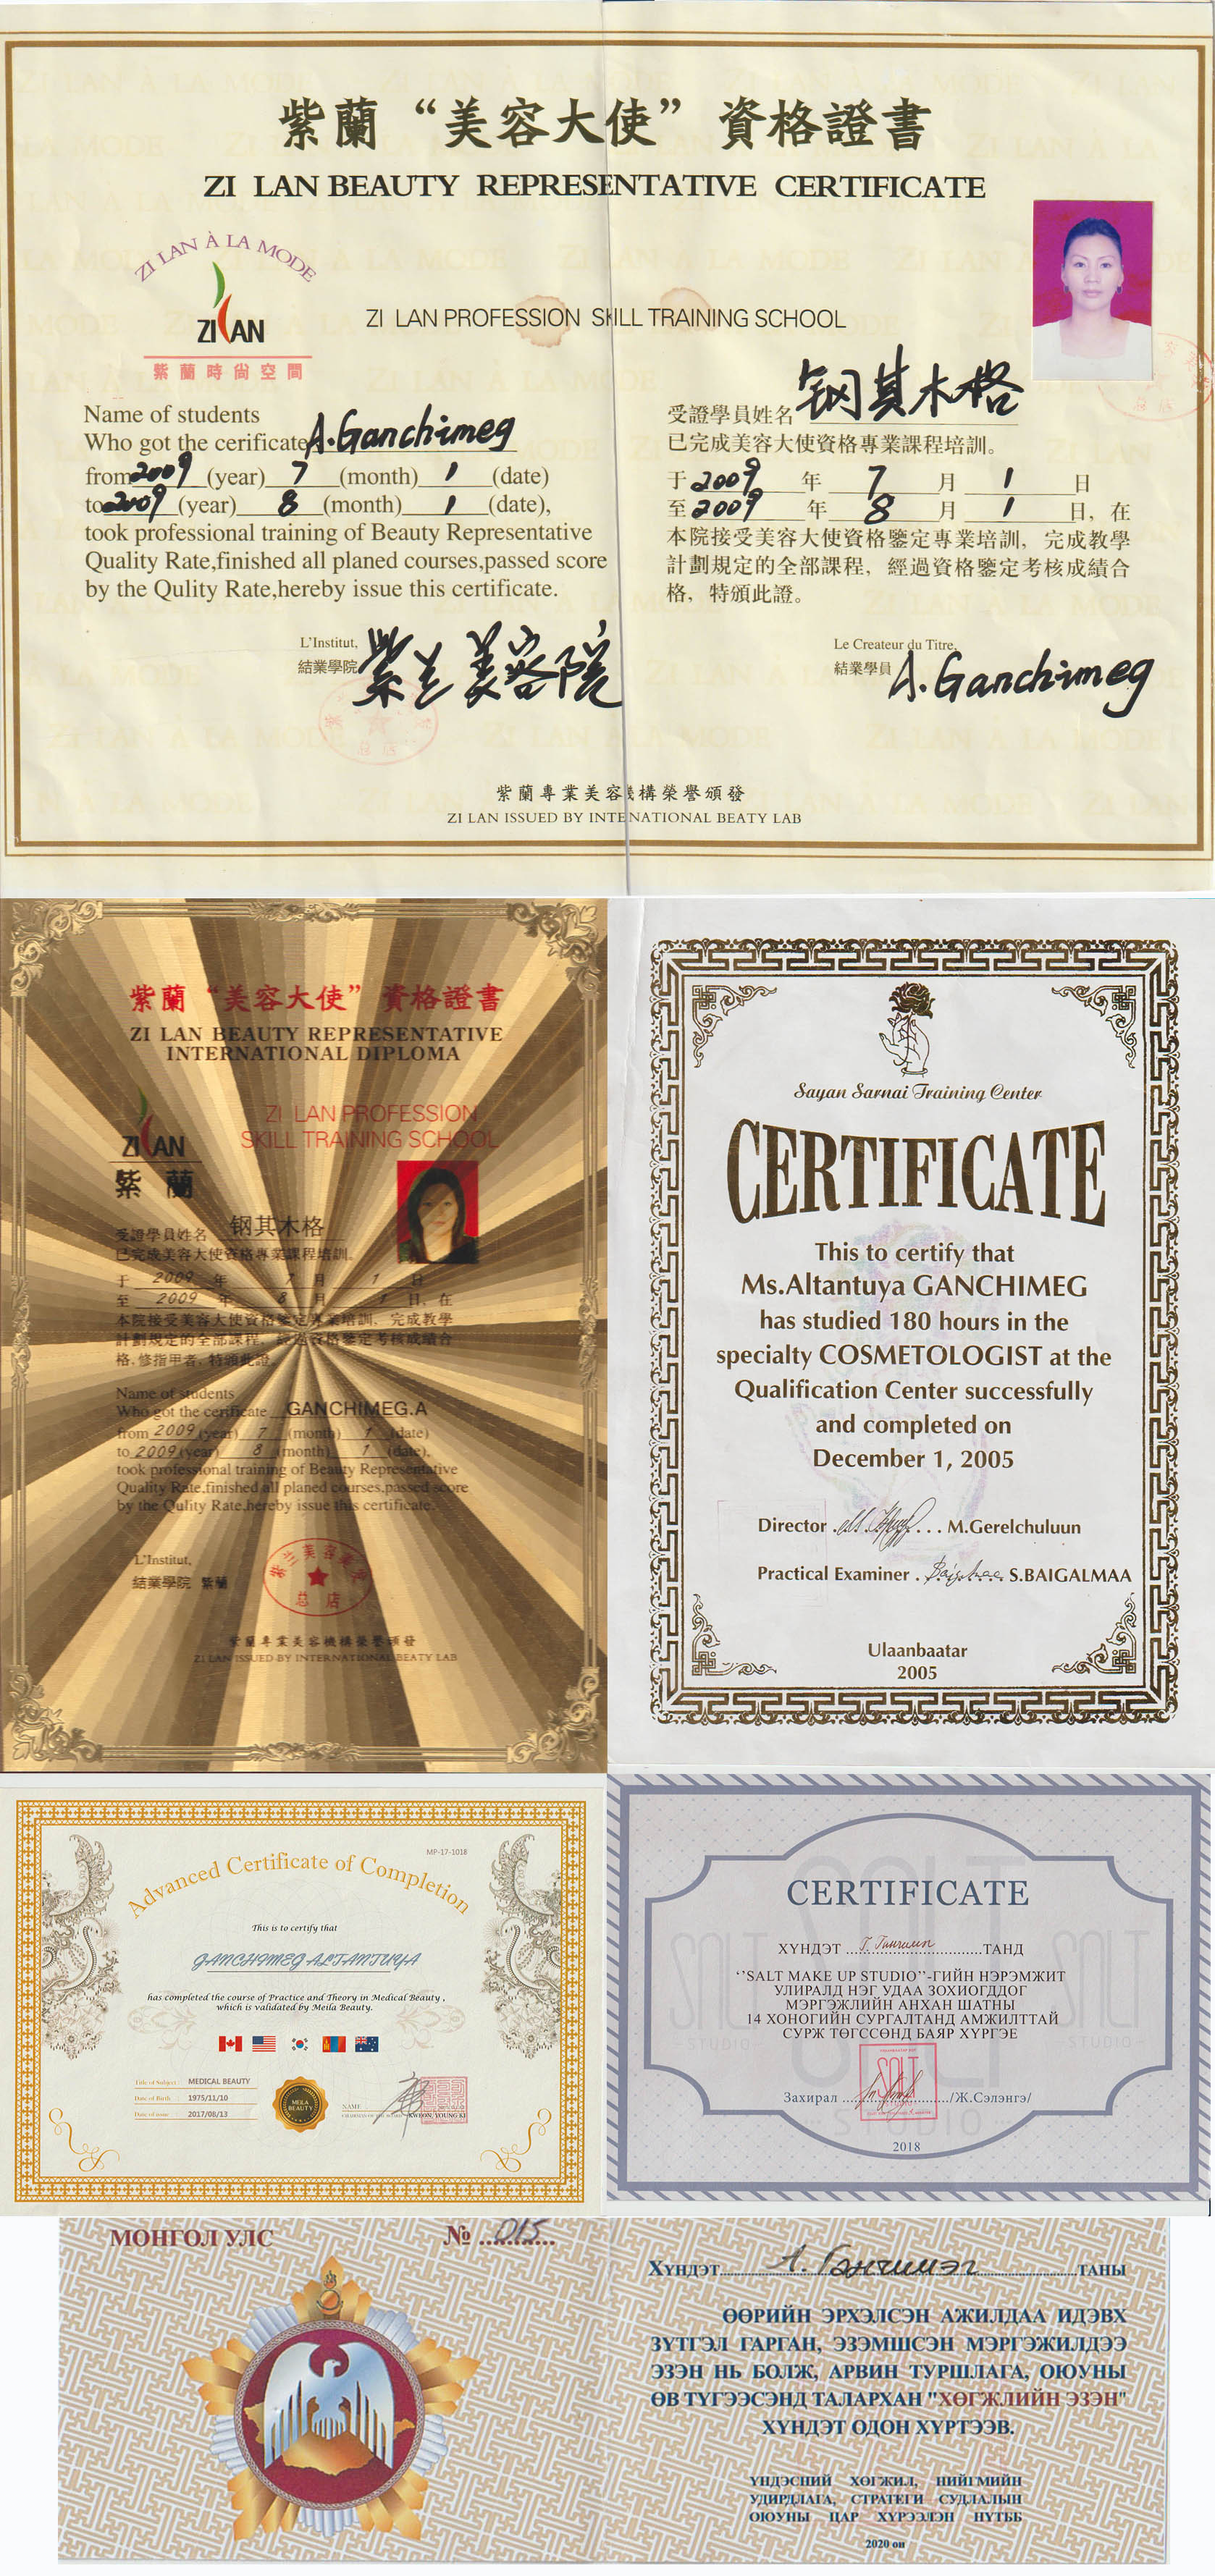 紫蘭“美容大使”資格證書
ZI LAN BEAUTY REPRESENTATIVE CERTIFICATE
ZI LAN À LA MODE
ZI LAN
紫蘭時尚空間
ZI LAN PROFESSION SKILL TRAINING SCHOOL
Name of students
Who got the cerificate A.Ganchimeg
from 2009 (year) 7 (month) 1 (date)
to 2009 (year) 8 (month) 1 (date),
took professional training of Beauty Representative
Quality Rate,finished all planed courses,passed score
by the Qulity Rate,hereby issue this certificate.
L'Institut,
結業學院 紫兰美容院
受證學員姓名 钢其木格
已完成美容大使資格專業課程培訓。
于 2009 年 7 月 1 日
至 2009 年 8 月 1 日, 在
本院接受美容大使資格鑒定專業培訓, 完成教學
計劃規定的全部課程, 經過資格鑒定考核成績合
格, 特頒此證。
Le Createur du Titre,
結業學員 A.Ganchimeg
紫蘭專業美容機構榮譽頒發
ZI LAN ISSUED BY INTENATIONAL BEATY LAB
紫蘭“美容大使”資格證書
ZI LAN BEAUTY REPRESENTATIVE
INTERNATIONAL DIPLOMA
ZI LAN
紫蘭
ZI LAN PROFESSION
SKILL TRAINING SCHOOL
受證學員姓名 钢其木格
已完成美容大使資格專業課程培訓.
于 2009 年 7 月 1 日
至 2009 年 8 月 1 日, 在
本院接受美容大使資格鑒定專業培訓, 完成教學
計劃規定的全部課程, 經過資格鑒定考核成績合
格,修指甲者,特頒此證.
Name of students
Who got the cerificate GANCHIMEG.A
from 2009 (year) 7 (month) 1 (date)
to 2009 (year) 8 (month) 1 (date),
took professional training of Beauty Representative
Quality Rate,finished all planed courses,passed score
by the Qulity Rate,hereby issue this certificate.
L'Institut,
結業學院 紫蘭
总店
紫蘭專業美容機構榮譽頒發
ZI LAN ISSUED BY INTERNATIONAL BEATY LAB
Sayan Sarnai Training Center
CERTIFICATE
This to certify that
Ms.Altantuya GANCHIMEG
has studied 180 hours in the
specialty COSMETOLOGIST at the
Qualification Center successfully
and completed on
December 1, 2005
Director ... M.Gerelchuluun
Practical Examiner . S.BAIGALMAA
Ulaanbaatar
2005
MP-17-1018
Advanced Certificate of Completion
This is to certify that
GANCHIMEG ALTANTUYA
has completed the course of Practice and Theory in Medical Beauty ,
which is validated by Meila Beauty.
Title of Subject : MEDICAL BEAUTY
Date of Birth : 1975/11/10
Date of issue : 2017/08/13
MEILA
BEAUTY
NAME
KWEON, YOUNG KI
CERTIFICATE
ХҮНДЭТ ..................ТАНД
‘’SALT MAKE UP STUDIO’’-ГИЙН НЭРЭМЖИТ
УЛИРАЛД НЭГ УДАА ЗОХИОГДДОГ
МЭРГЭЖЛИЙН АНХАН ШАТНЫ
14 ХОНОГИЙН СУРГАЛТАНД АМЖИЛТТАЙ
СУРЖ ТӨГССӨНД БАЯР ХҮРГЭЕ
SALT
STUDIO
Захирал ................/Ж.Сэлэнгэ/
2018
МОНГОЛ УЛС
№ 015
Хүндэт А. Ганчимэг таны
ӨӨРИЙН ЭРХЭЛСЭН АЖИЛДАА ИДЭВХ
ЗҮТГЭЛ ГАРГАН, ЭЗЭМШСЭН МЭРГЭЖИЛДЭЭ
ЭЗЭН НЬ БОЛЖ, АРВИН ТУРШЛАГА, ОЮУНЫ
ӨВ ТҮГЭЭСЭНД ТАЛАРХАН "ХӨГЖЛИЙН ЭЗЭН"
ХҮНДЭТ ОДОН ХҮРТЭЭВ.
ҮНДЭСНИЙ ХӨГЖИЛ, НИЙГМИЙН
УДИРДЛАГА, СТРАТЕГИ СУДЛАЛЫН
ОЮУНЫ ЦАР ХҮРЭЭЛЭН НҮТББ
2020 он